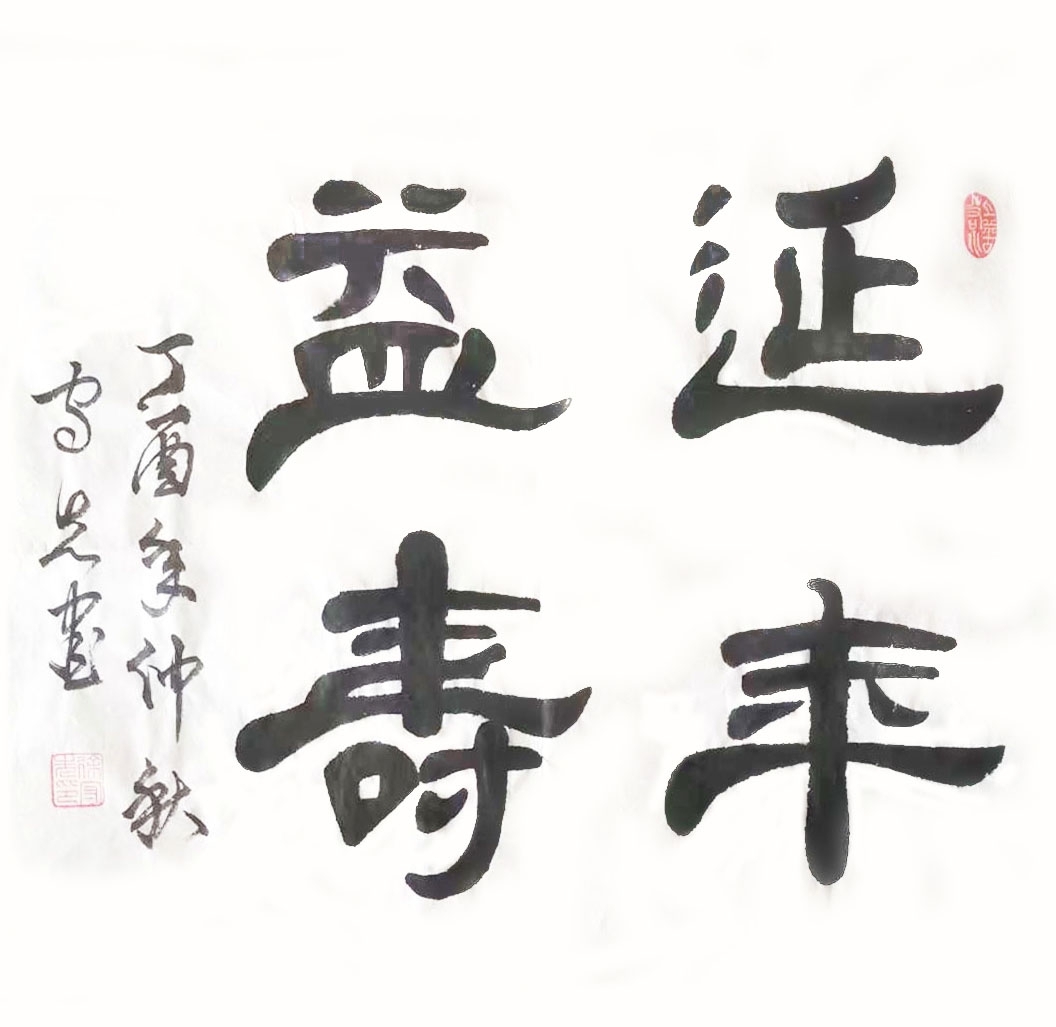 延年
益壽
丁酉年仲秋
守光書